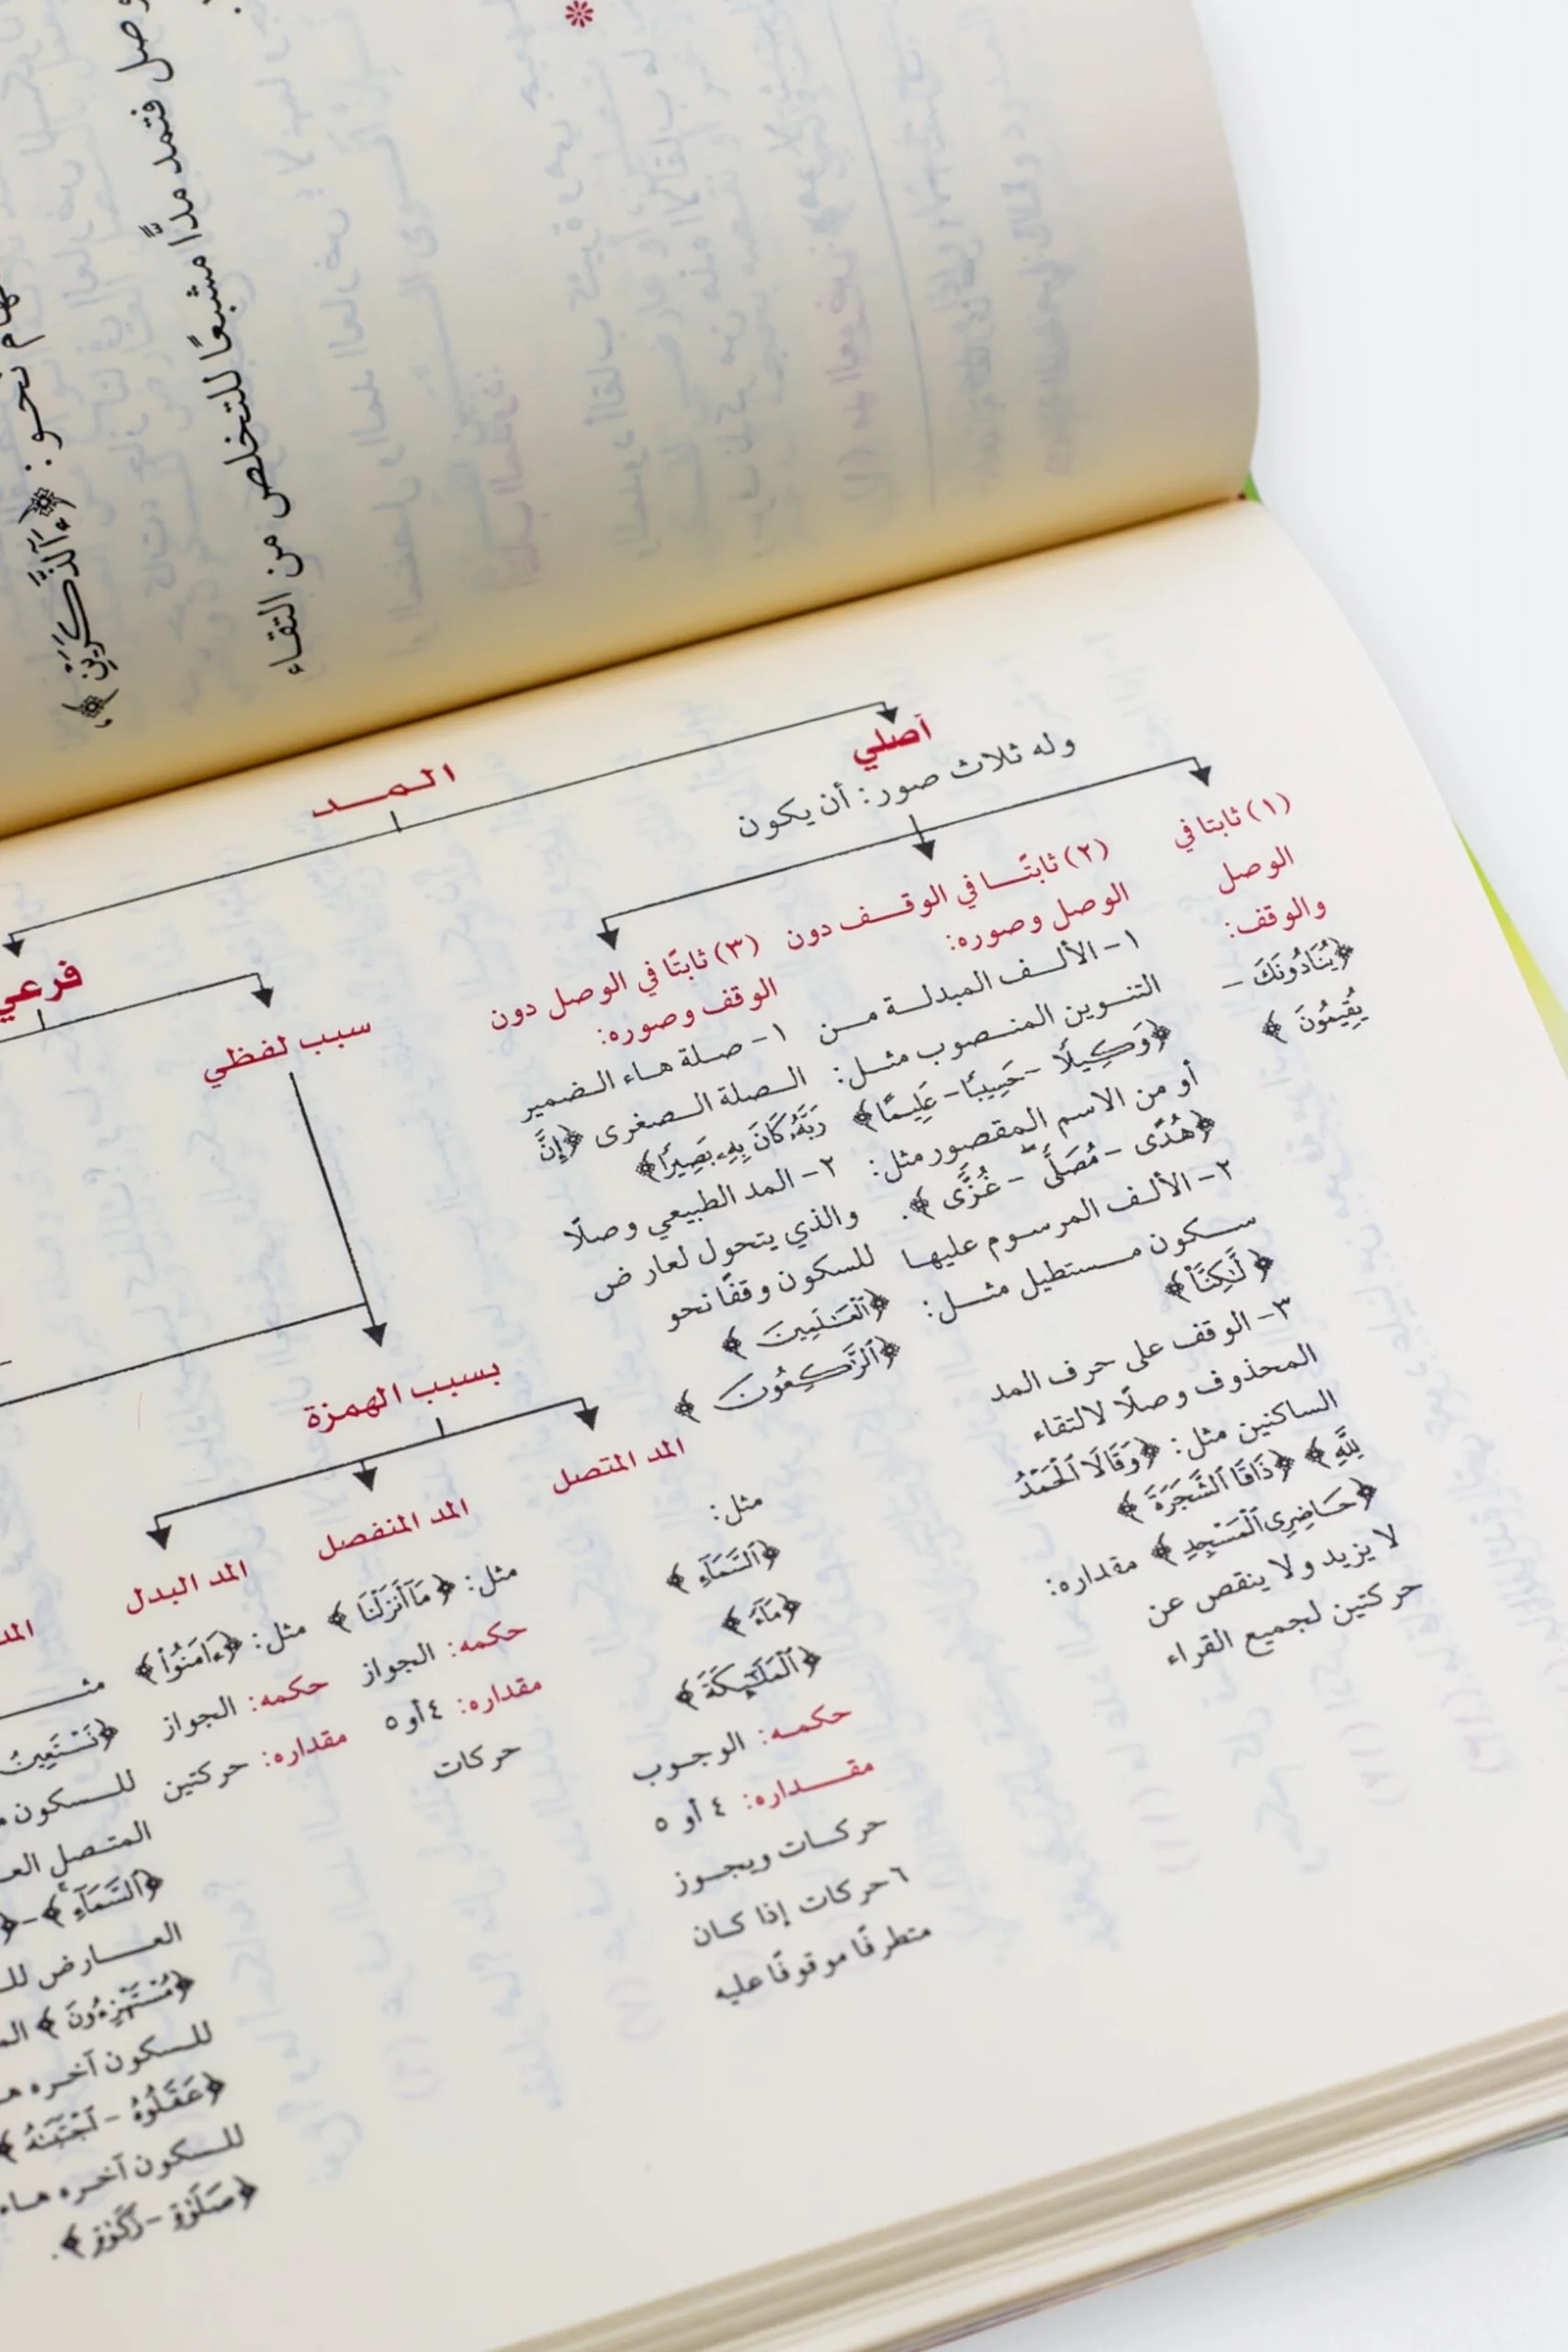 وصل فتمد مدًّا مشبعًا للتخلص من التقاء
نحو: ﴿ءَآلذَّكَرَيْنِ﴾،
المــد
أصلي
وله ثلاث صور: أن يكون
(١) ثابتا في
الوصل
والوقف:
﴿يُنَادُونَكَ -
يُقِيمُونَ﴾
(٢) ثابتًــا في الوقــف دون
الوصل وصوره:
١- الألــف المبدلــة مــن
التنــوين المنــصوب مثــل:
﴿وَكِيلًا - حَسِيبًا - عَلِيمًا﴾
أو من الاسم المقصور مثل:
﴿هُدًى - مُصَلًّى - غُزًّى﴾.
٢- الألــف المرسوم عليهــا
ســكون مــستطيل مثــل:
﴿لَّكِنَّا۠﴾
٣- الوقف على حرف المد
المحذوف وصلًا لالتقاء
الساكنين مثل: ﴿وَقَالَا ٱلْحَمْدُ
لِلَّهِ﴾ ﴿ذَاقَا ٱلشَّجَرَةَ﴾
﴿حَاضِرِى ٱلْمَسْجِدِ﴾ مقداره:
لا يزيد ولا ينقص عن
حركتين لجميع القراء
(٣) ثابتًا في الوصل دون
الوقف وصوره:
١- صــلة هــاء الــضمير
الــصلة الــصغرى ﴿إِنَّ
رَبَّهُۥ كَانَ بِهِۦ بَصِيرًا﴾
٢- المد الطبيعي وصلًا
والذي يتحول لعارض
للسكون وقفًا نحو
﴿ٱلْعَٰلَمِينَ﴾
﴿ٱلرَّٰكِعُونَ﴾
فرعي
سبب لفظي
بسبب الهمزة
المد المتصل
مثل:
﴿ٱلسَّمَآءِ﴾
﴿مَآءً﴾
﴿ٱلْمَلَٰٓئِكَةَ﴾
حكمــه: الوجــوب
مقــداره: ٤ أو ٥
حركــات ويجــوز
٦ حركات إذا كــان
متطرفًا موقوفًا عليه
المد المنفصل
مثل: ﴿مَآ أَنزَلْنَا﴾
حكمه: الجواز
مقداره: ٤ أو ٥
حركات
المد البدل
مثل: ﴿ءَامَنُوا۟﴾
حكمه: الجواز
مقداره: حركتين
﴿نَسْتَعِينُ
للــسكون
المتــصل
﴿ٱلسَّمَآءِ﴾ -
العــارض
﴿مُسْتَهْزِءُونَ﴾
للــسكون آخــره
﴿عَقَلُوهُ - ٱجْتَبَٰهُ﴾
للــسكون آخــره هــاء
﴿صَلَوٰةِ - زَكَوٰةِ﴾.